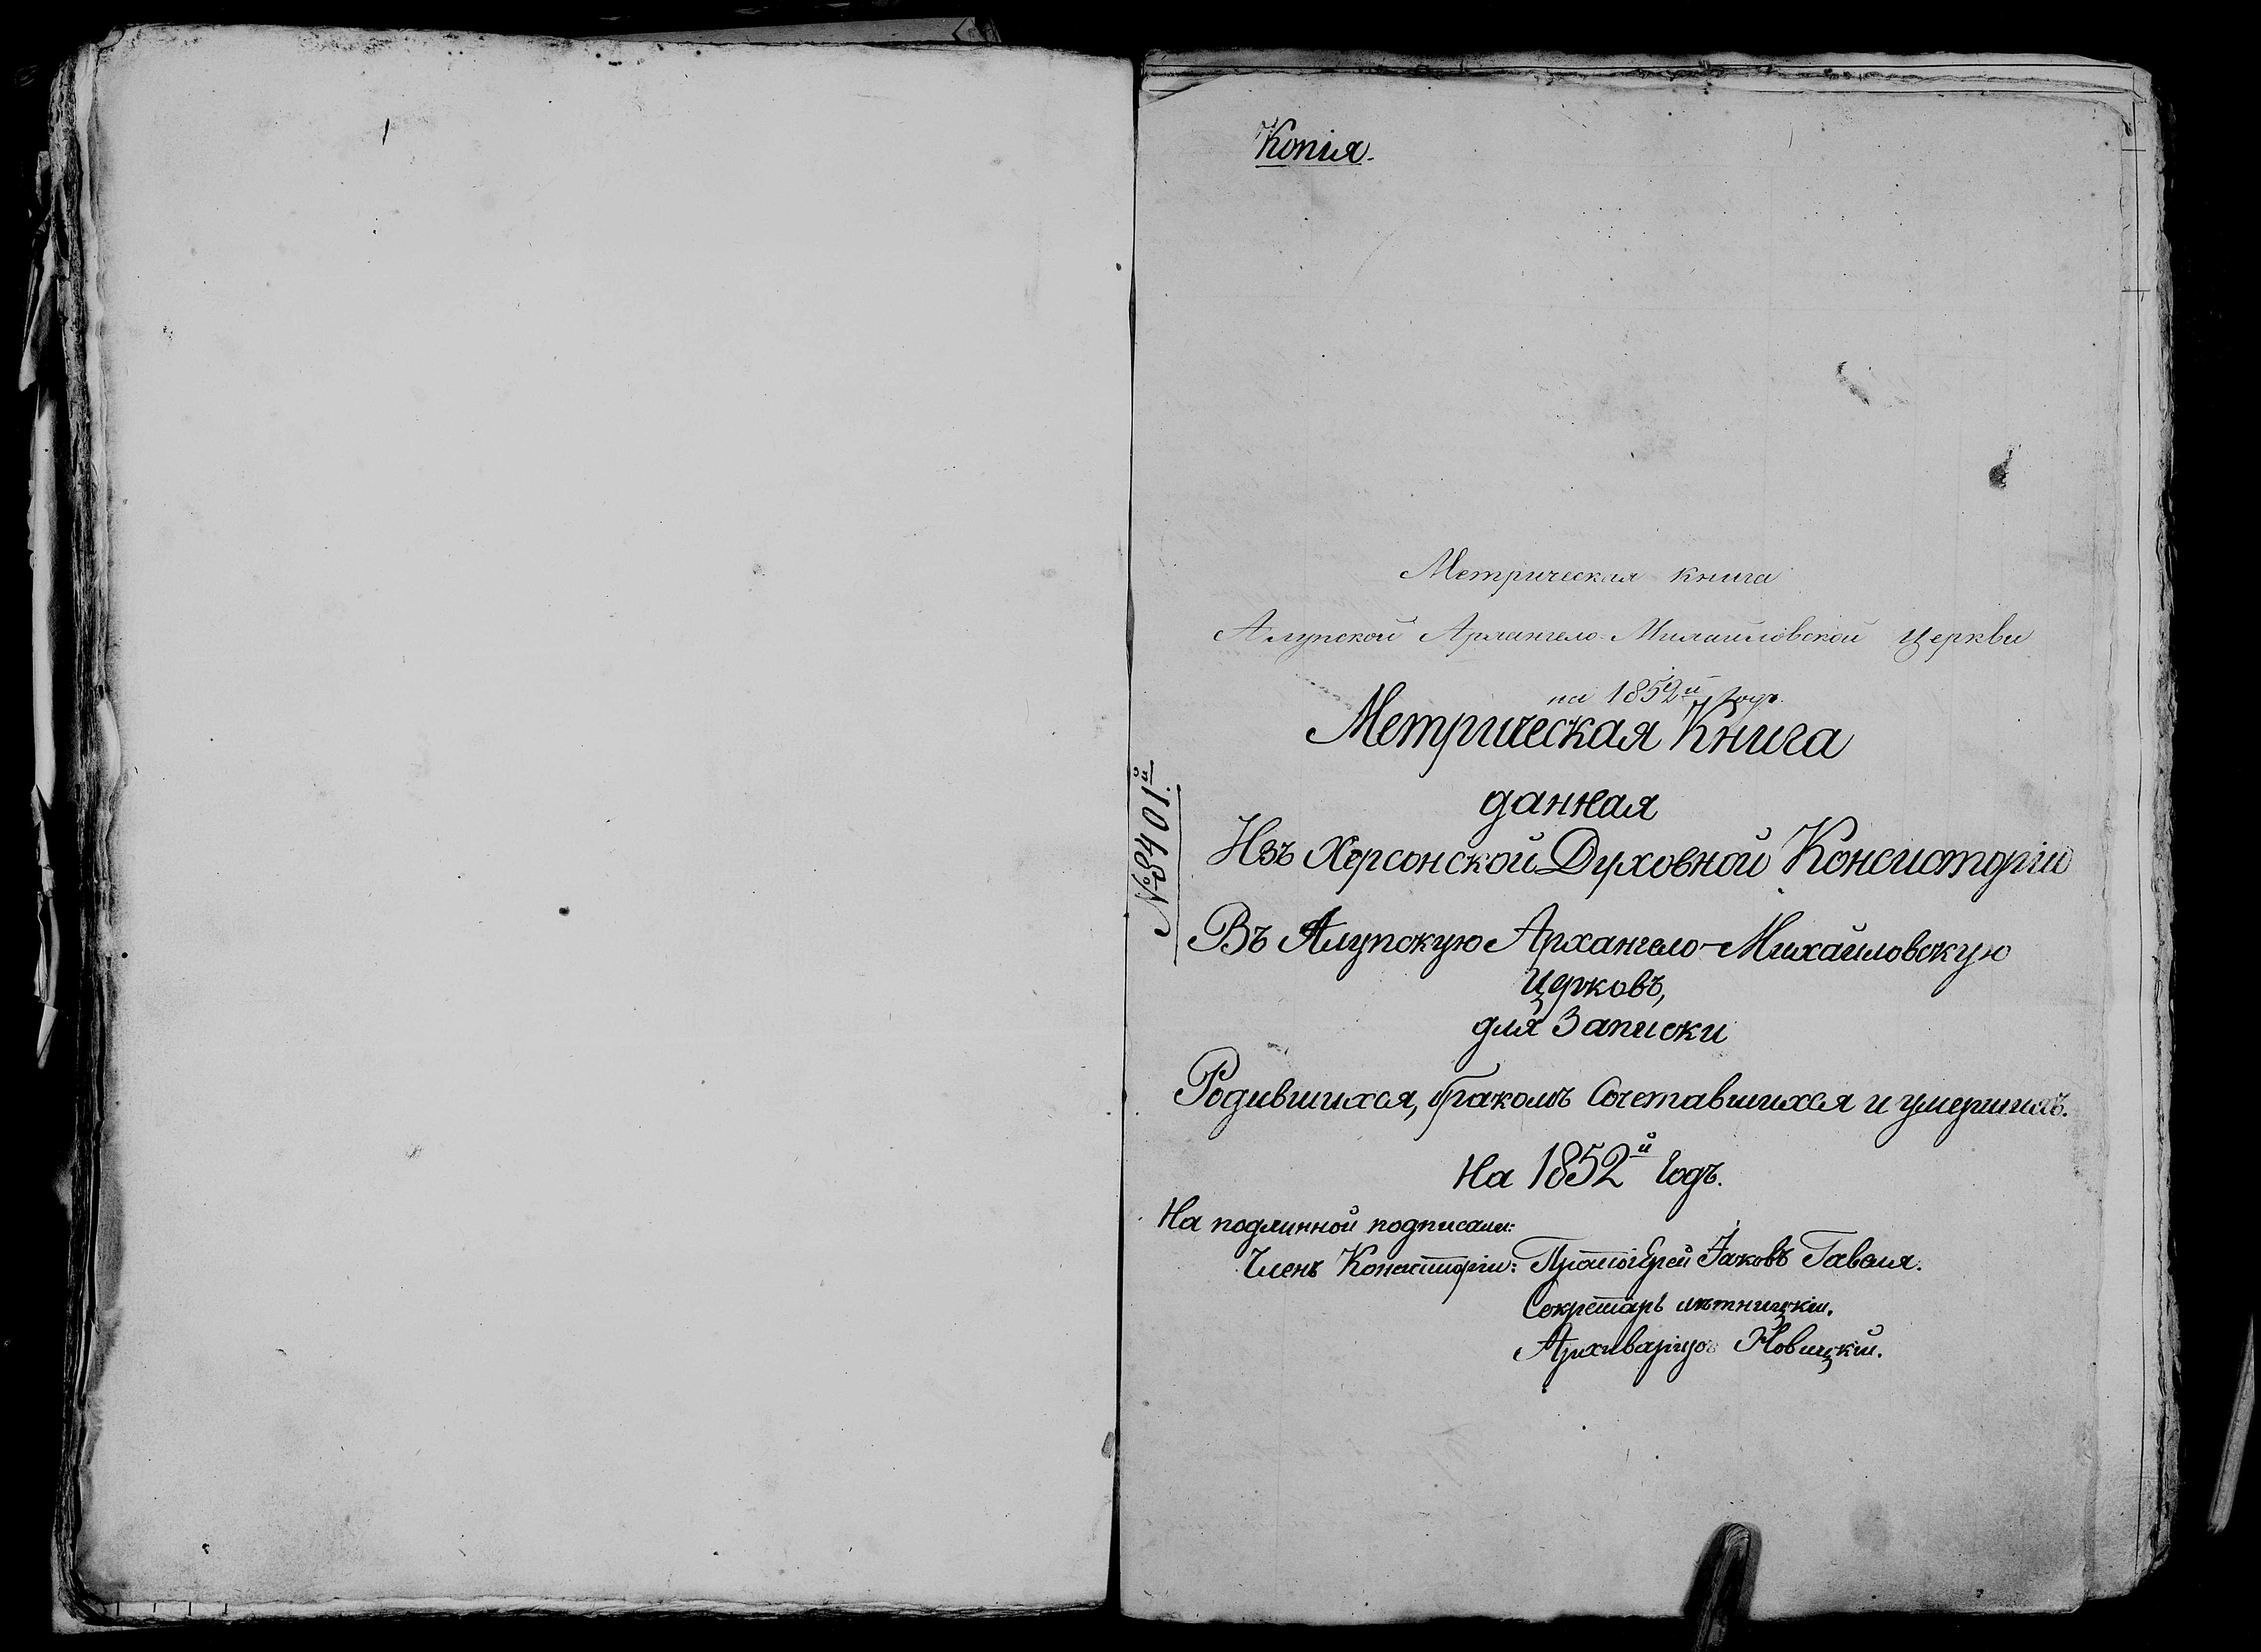 Копія.
Метрическая книга
Алупской Архангело-Михайловской церкви
на 1852й годъ.
Метрическая Книга
данная
Изъ Херсонской Духовной Консисторіи
Въ Алупскую Архангело-Михайловскую
Церковъ,
для Записки
Родившихся, бракомъ Сочетавшихся и умершихъ.
На 1852й Годъ.
На подлинной подписали:
Членъ Консисторіи: Протоіерей Іаковъ
Секретарь
Архиваріусъ Новицкій.
№ 3401.й